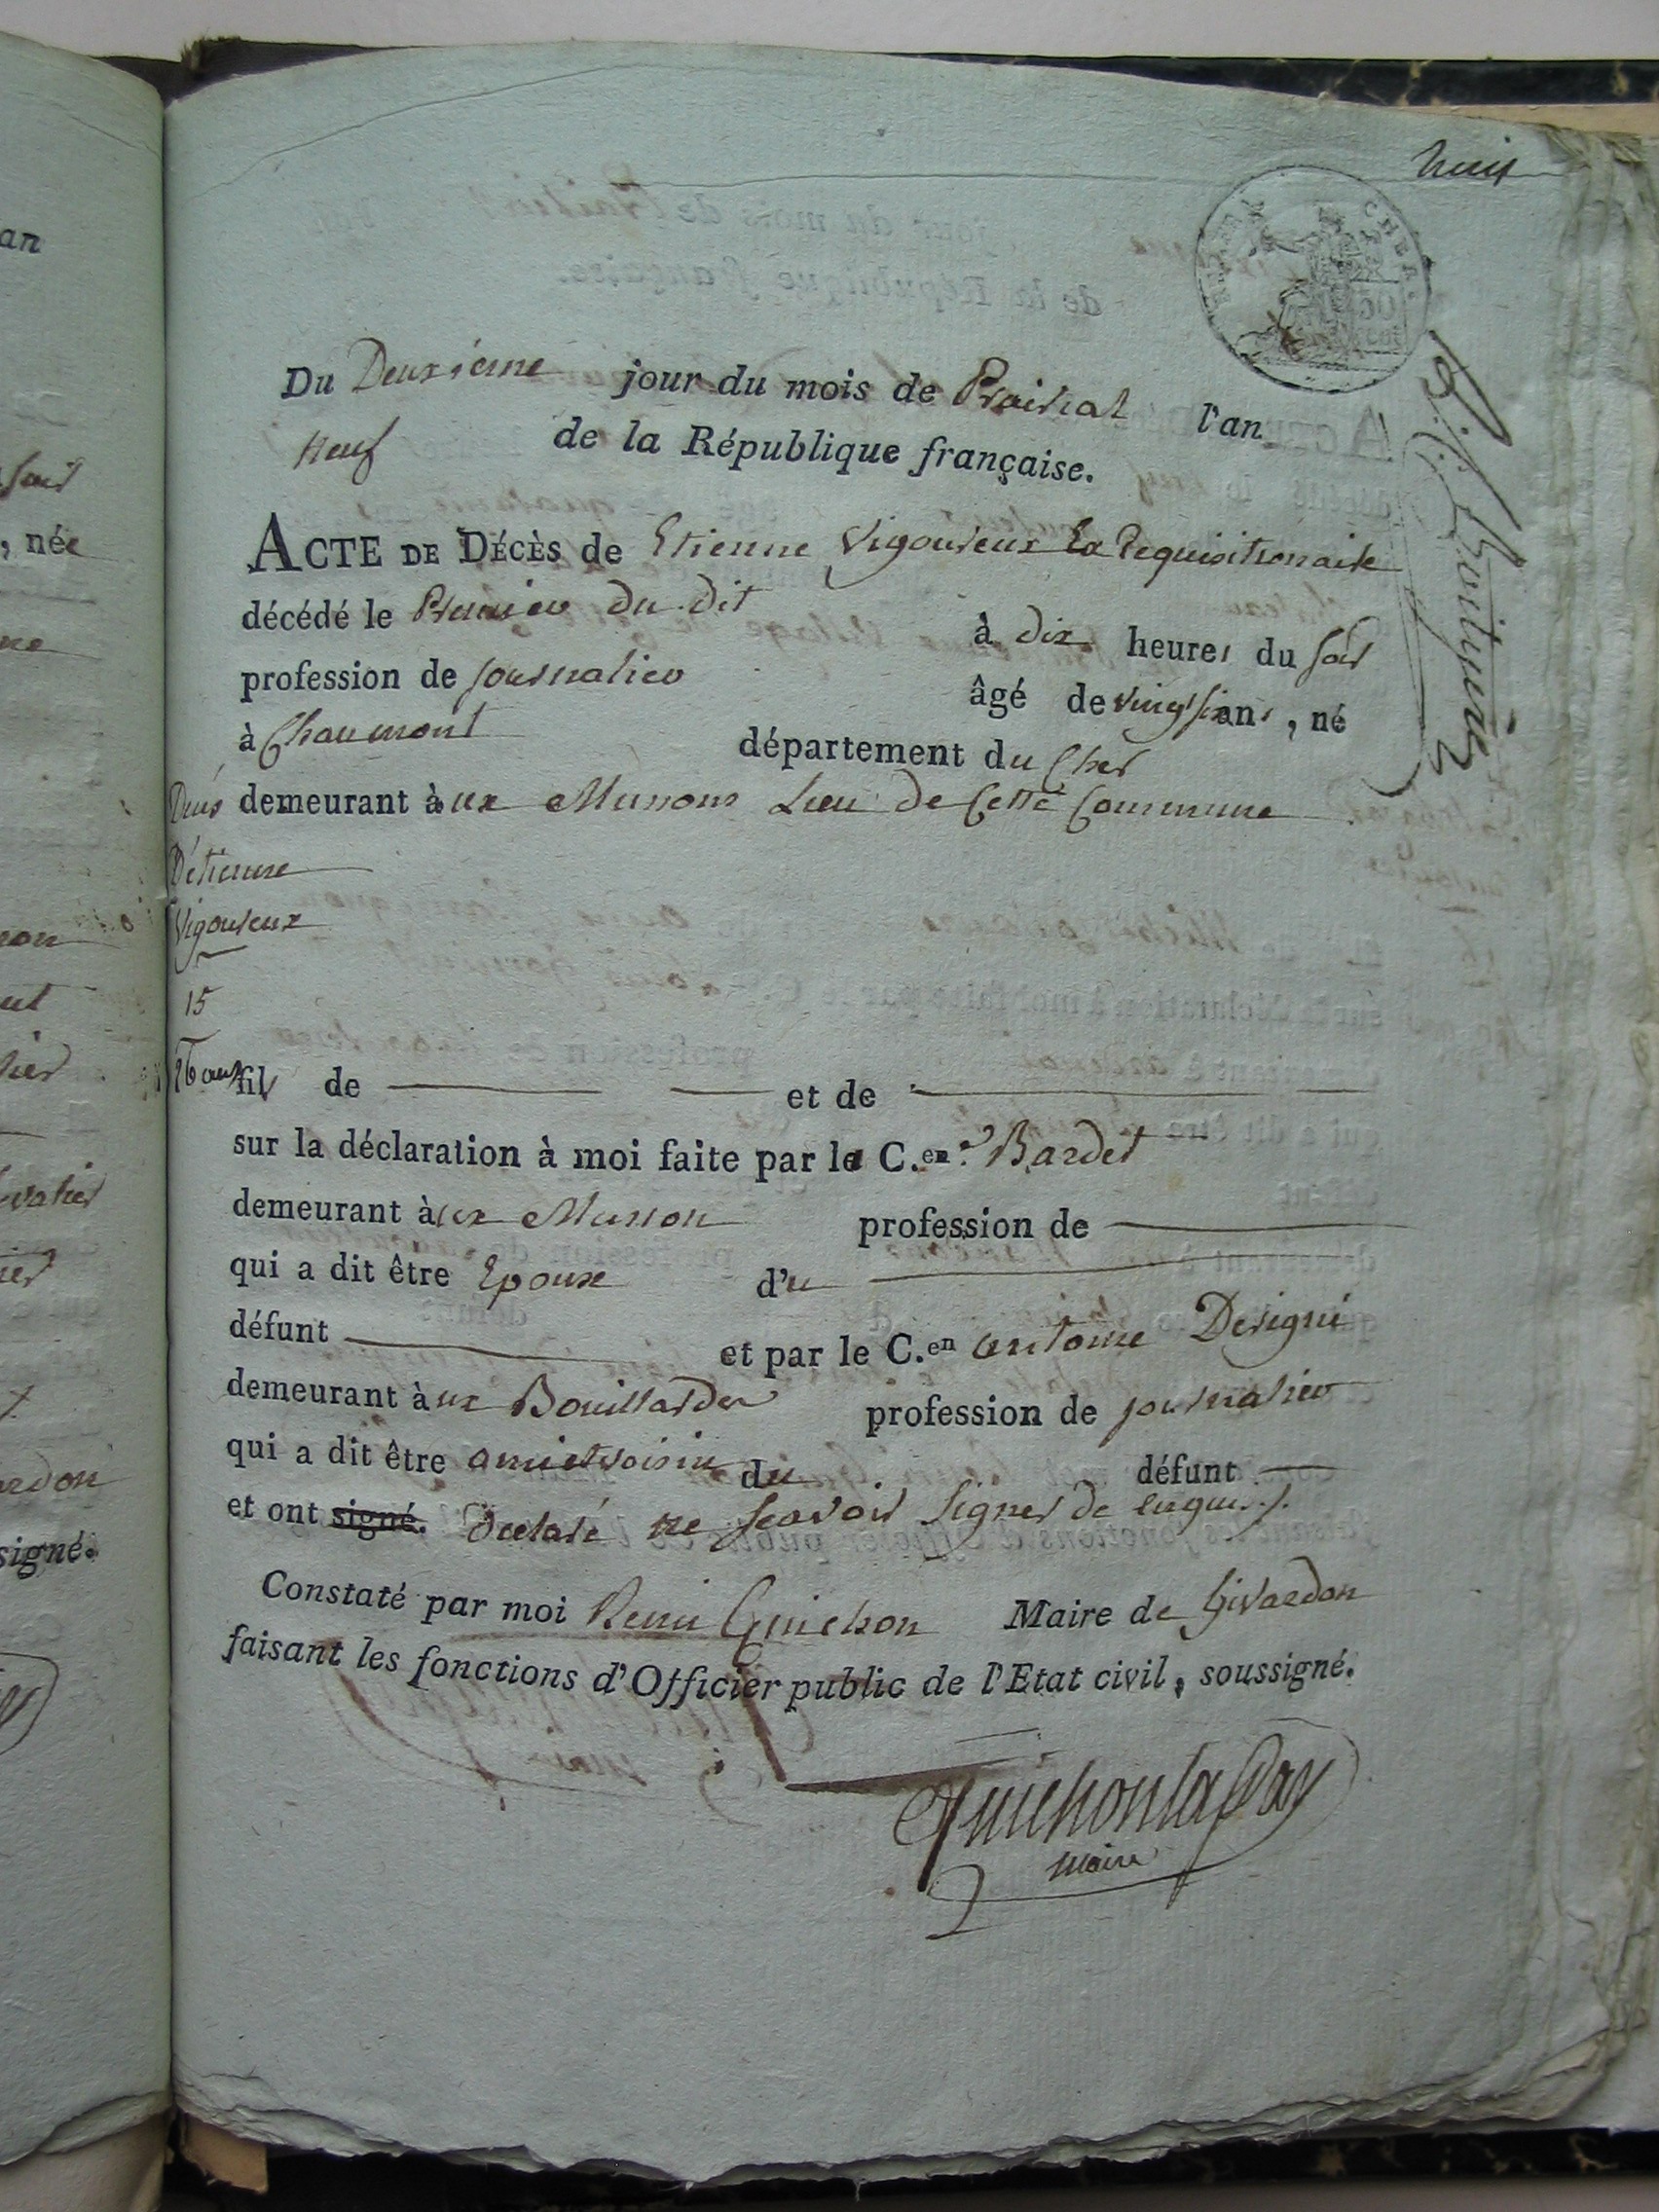 huit
Du Deuxieme jour du mois de Prairial l'an
neuf de la République française.
ACTE DE DÉCÈS de Etienne Vigoureux Ex Requisitionaire
décédé le Premier du dit à dix heures du soir
profession de journalier âgé de vingt six ans, né
à Chaumont département du Cher
demeurant à ux Mussons Lieu de Cette Commune
Décès
D'étienne
Vigoureux
15
26 ans
fils de et de
sur la déclaration à moi faite par la C.en e Bardet
demeurant à ux Musson profession de
qui a dit être Epouse d'u
défunt et par le C.en antoine Perigni
demeurant à ux Bouillardes profession de journalier
qui a dit être ami et voisin du défunt
et ont signé. declaré ne scavoir signer de enquis.
Constaté par moi Remi Guichon Maire de Givardon
faisant les fonctions d'Officier public de l'Etat civil, soussigné.
Guichon
maire
an
soir
, née
ardon
signé.